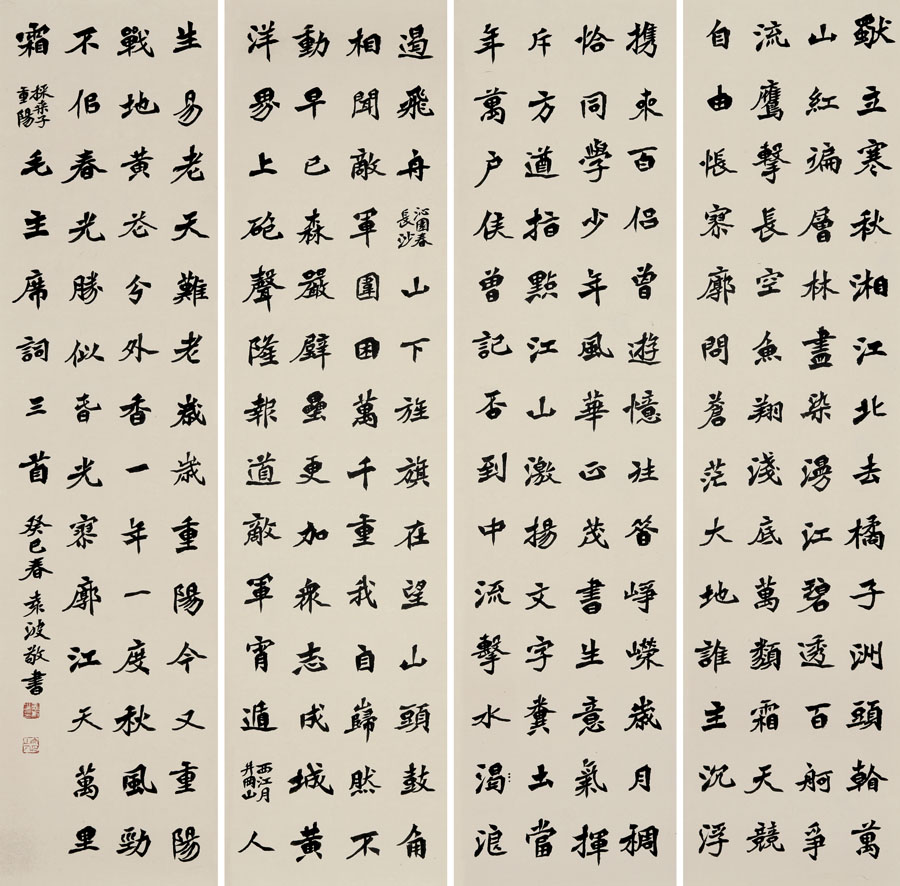 獨立寒秋湘江北去橘子洲頭看萬
山紅遍層林盡染漫江碧透百舸爭
流鷹擊長空魚翔淺底萬類霜天競
自由悵寥廓問蒼茫大地誰主沉浮
携來百侶曾遊憶往昔崢嶸歲月稠
恰同學少年風華正茂書生意氣揮
斥方遒指點江山激揚文字糞土當
年萬户侯曾記否到中流擊水渴浪
遏飛舟沁園春長沙山下旌旗在望山頭鼓角
相聞敵軍圍困萬千重我自巋然不
動早已森嚴壁壘更加衆志成城黃
洋界上砲聲隆報道敵軍宵遁西江月井岡山人
生易老天難老歲歲重陽今又重陽
戰地黃花分外香一年一度秋風勁
不佀春光勝似春光寥廓江天萬里
霜採桑子重陽毛主席詞三首癸巳春袁波敬書